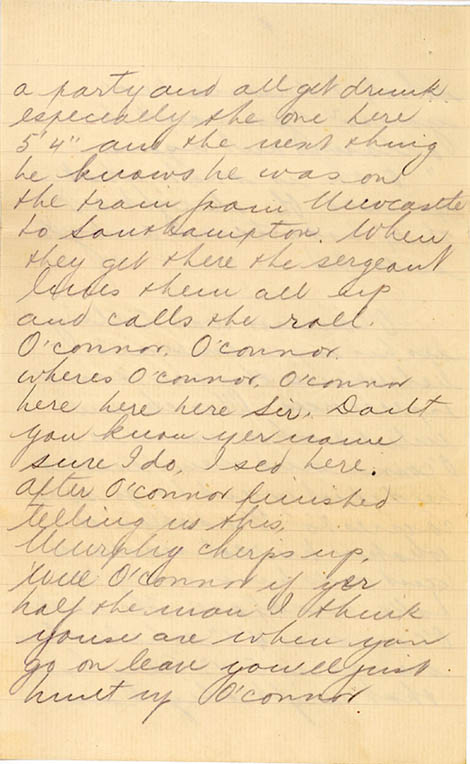 a party and all get drunk
especially the one here
5'4" and the next thing
he knows he was on
the train from Newcastle
to Southampton. When
they get there the sergeant
lines them all up
and calls the roll.
O'connor, O'connor.
wheres O'connor. O'connor
here here here Sir. Don't
you know yer name
sure I do. I sed here.
after O'connor finished
telling us this.
Murphy cherps up.
Well O'connor if yer
half the man I think
youse are when you
go on leave you'll just.
hunt up O'connor